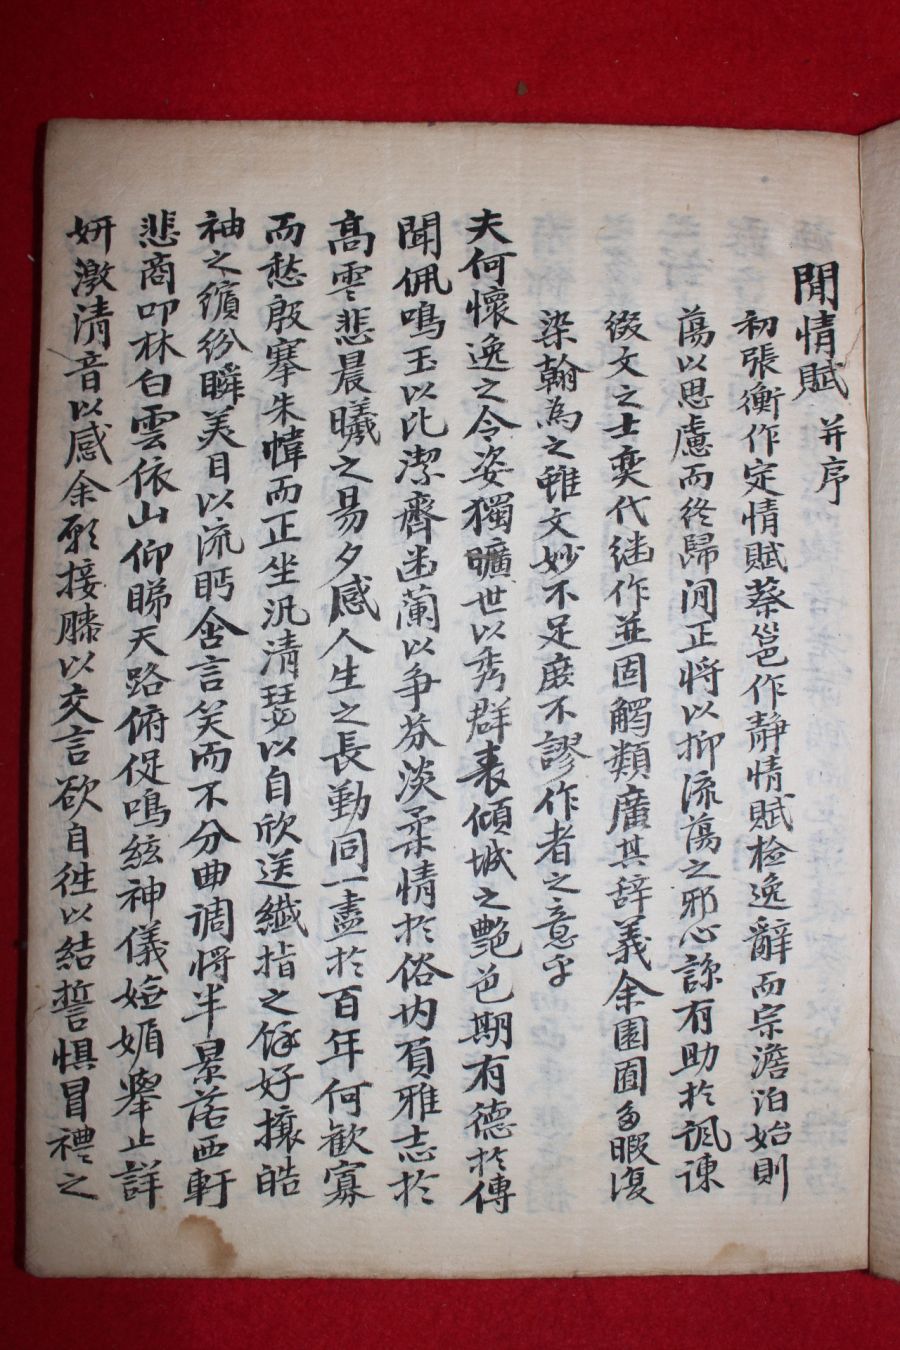 閒情賦 并序
初張衡作定情賦蔡邕作靜情賦檢逸辭而宗澹泊始則
蕩以思慮而終歸閒正將以抑流蕩之邪心諒有助於諷諫
綴文之士奕代継作並固觸類廣其辞義余園閭多暇復
染翰為之雖文妙不足庶不謬作者之意乎
夫何懷逸之令姿獨曠世以秀群表傾城之艶色期有德於傳
聞佩鳴玉以比潔齊幽蘭以争芬淡柔情於俗内負雅志於
高雲悲晨曦之易夕感人生之長勤同一盡於百年何歡寡
而愁殷搴朱幃而正坐汎清瑟以自欣送纖指之餘好攘皓
袖之繽紛瞬美目以流眄含言笑而不分曲调將半景落西軒
悲商叩林白雲依山仰睇天路俯促鳴絃神儀娬媚舉止詳
妍激清音以感余願接膝以交言欲自徃以結誓惧冒禮之